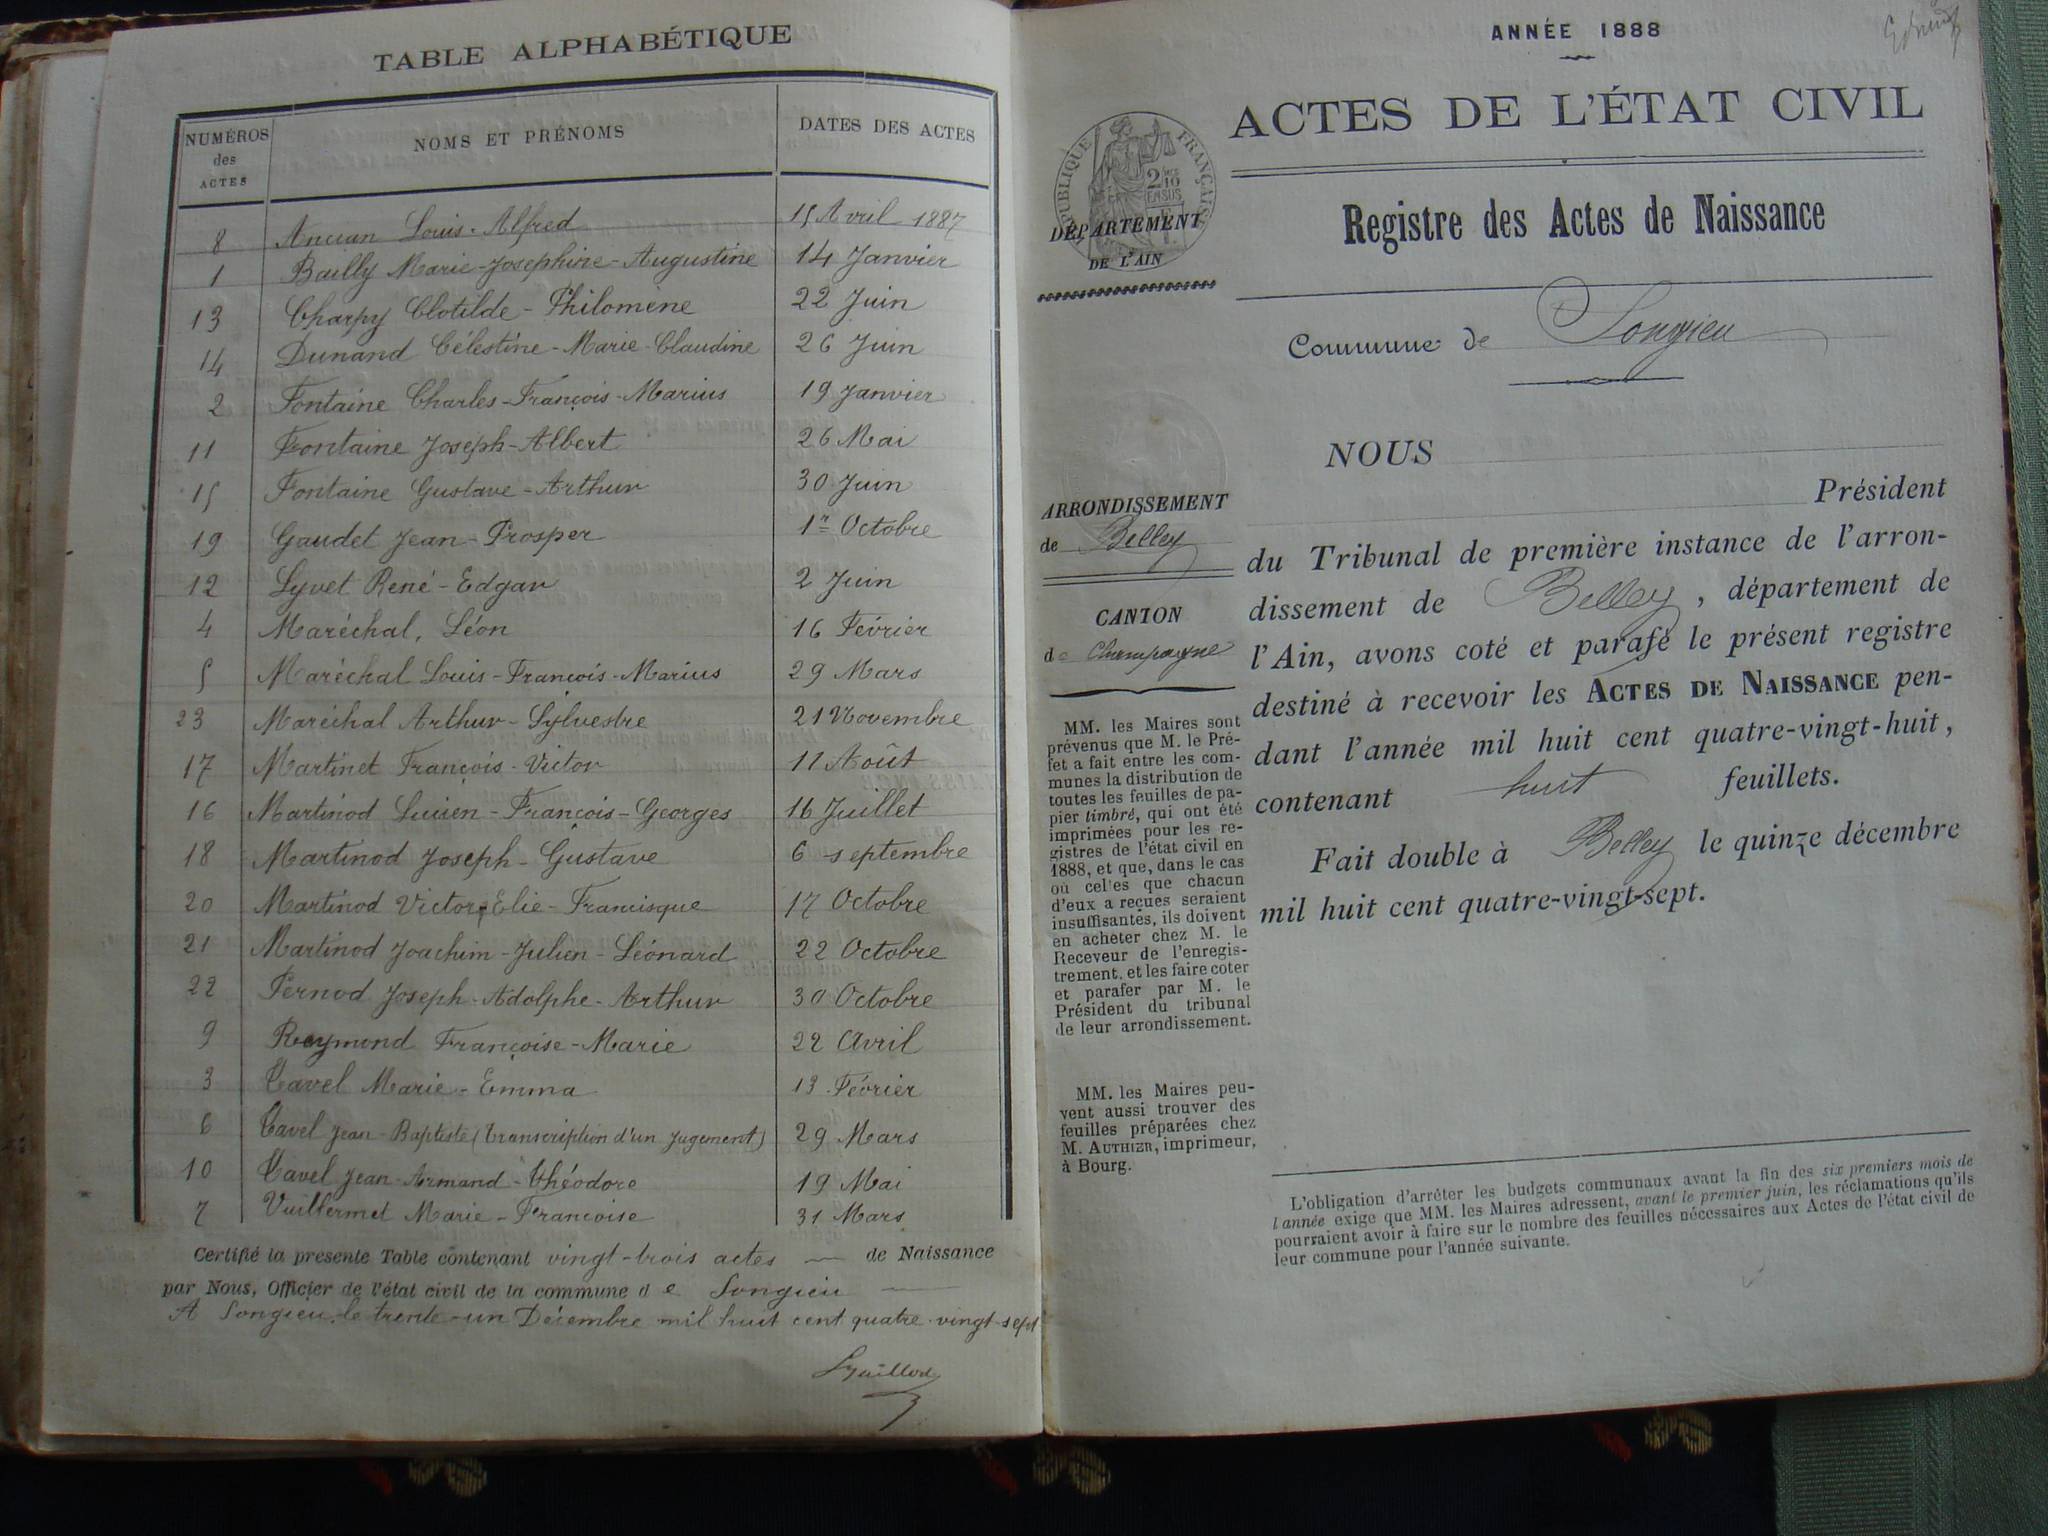 TABLE ALPHABÉTIQUE
NUMÉROS des ACTES NOMS ET PRÉNOMS DATES DES ACTES
8 Ancian Louis-Alfred 15 Avril 1887
1 Bailly Marie-Josephine-Augustine 14 Janvier
13 Charpy Clotilde-Philomène 22 Juin
14 Dunand Célestine-Marie-Claudine 26 Juin
2 Fontaine Charles-François-Marius 19 Janvier
11 Fontaine Joseph-Albert 26 Mai
15 Fontaine Gustave-Arthur 30 Juin
19 Gaudet Jean-Prosper 1r Octobre
12 Lyvet René-Edgar 2 Juin
4 Maréchal, Léon 16 Février
5 Maréchal Louis-François-Marius 29 Mars
23 Maréchal Arthur-Sylvestre 21 Novembre
17 Martinet François-Victor 11 Août
16 Martinod Lucien-François-Georges 16 Juillet
18 Martinod Joseph-Gustave 6 septembre
20 Martinod Victor-Elie-Francisque 17 Octobre
21 Martinod Joachim-Julien-Léonard 22 Octobre
22 Pernod Joseph-Adolphe-Arthur 30 Octobre
9 Reymond Françoise-Marie 22 Avril
3 Tavel Marie-Emma 13 Février
6 Tavel Jean-Baptiste (transcription d'un jugement) 29 Mars
10 Tavel Jean-Armand-Théodore 19 Mai
7 Vuillermet Marie-Françoise 31 Mars
Certifié la presente Table contenant vingt-trois actes — de Naissance
par Nous, Officier de l'état civil de la commune de Songieu —
A Songieu, le trente-un Décembre mil huit cent quatre-vingt-sept
ANNÉE 1888
ACTES DE L'ÉTAT CIVIL
RÉPUBLIQUE FRANÇAISE
2/10 EN SUS
DÉPARTEMENT
DE L'AIN
Registre des Actes de Naissance
Commune de Songieu
ARRONDISSEMENT
de Belley
CANTON
de Champagne
MM. les Maires sont
prévenus que M. le Pré-
fet a fait entre les com-
munes la distribution de
toutes les feuilles de pa-
pier timbré, qui ont été
imprimées pour les re-
gistres de l'état civil en
1888, et que, dans le cas
où celles que chacun
d'eux a reçues seraient
insuffisantes, ils doivent
en acheter chez M. le
Receveur de l'enregis-
trement, et les faire coter
et parafer par M. le
Président du tribunal
de leur arrondissement.
MM. les Maires peu-
vent aussi trouver des
feuilles préparées chez
M. AUTHIER, imprimeur,
à Bourg.
NOUS
Président
du Tribunal de première instance de l'arron-
dissement de Belley, département de
l'Ain, avons coté et parafé le présent registre
destiné à recevoir les ACTES DE NAISSANCE pen-
dant l'année mil huit cent quatre-vingt-huit,
contenant huit feuillets.
Fait double à Belley le quinze décembre
mil huit cent quatre-vingt-sept.
L'obligation d'arrêter les budgets communaux avant la fin des six premiers mois de
l'année exige que MM. les Maires adressent, avant le premier juin, les réclamations qu'ils
pourraient avoir à faire sur le nombre des feuilles nécessaires aux Actes de l'état civil de
leur commune pour l'année suivante.